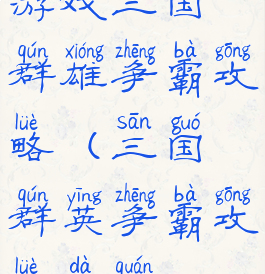 游戏三国
qún xióng zhēng bà gōng
群雄争霸攻
lüè sān guó
略（三国
qún yīng zhēng bà gōng
群英争霸攻
lüè dà quán